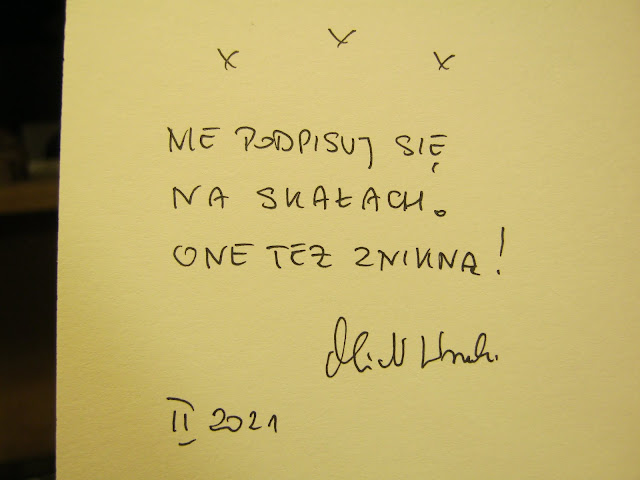 x x x
NIE PODPISUJ SIĘ
NA SKAŁACH.
ONE TEŻ ZNIKNĄ!
II 2021